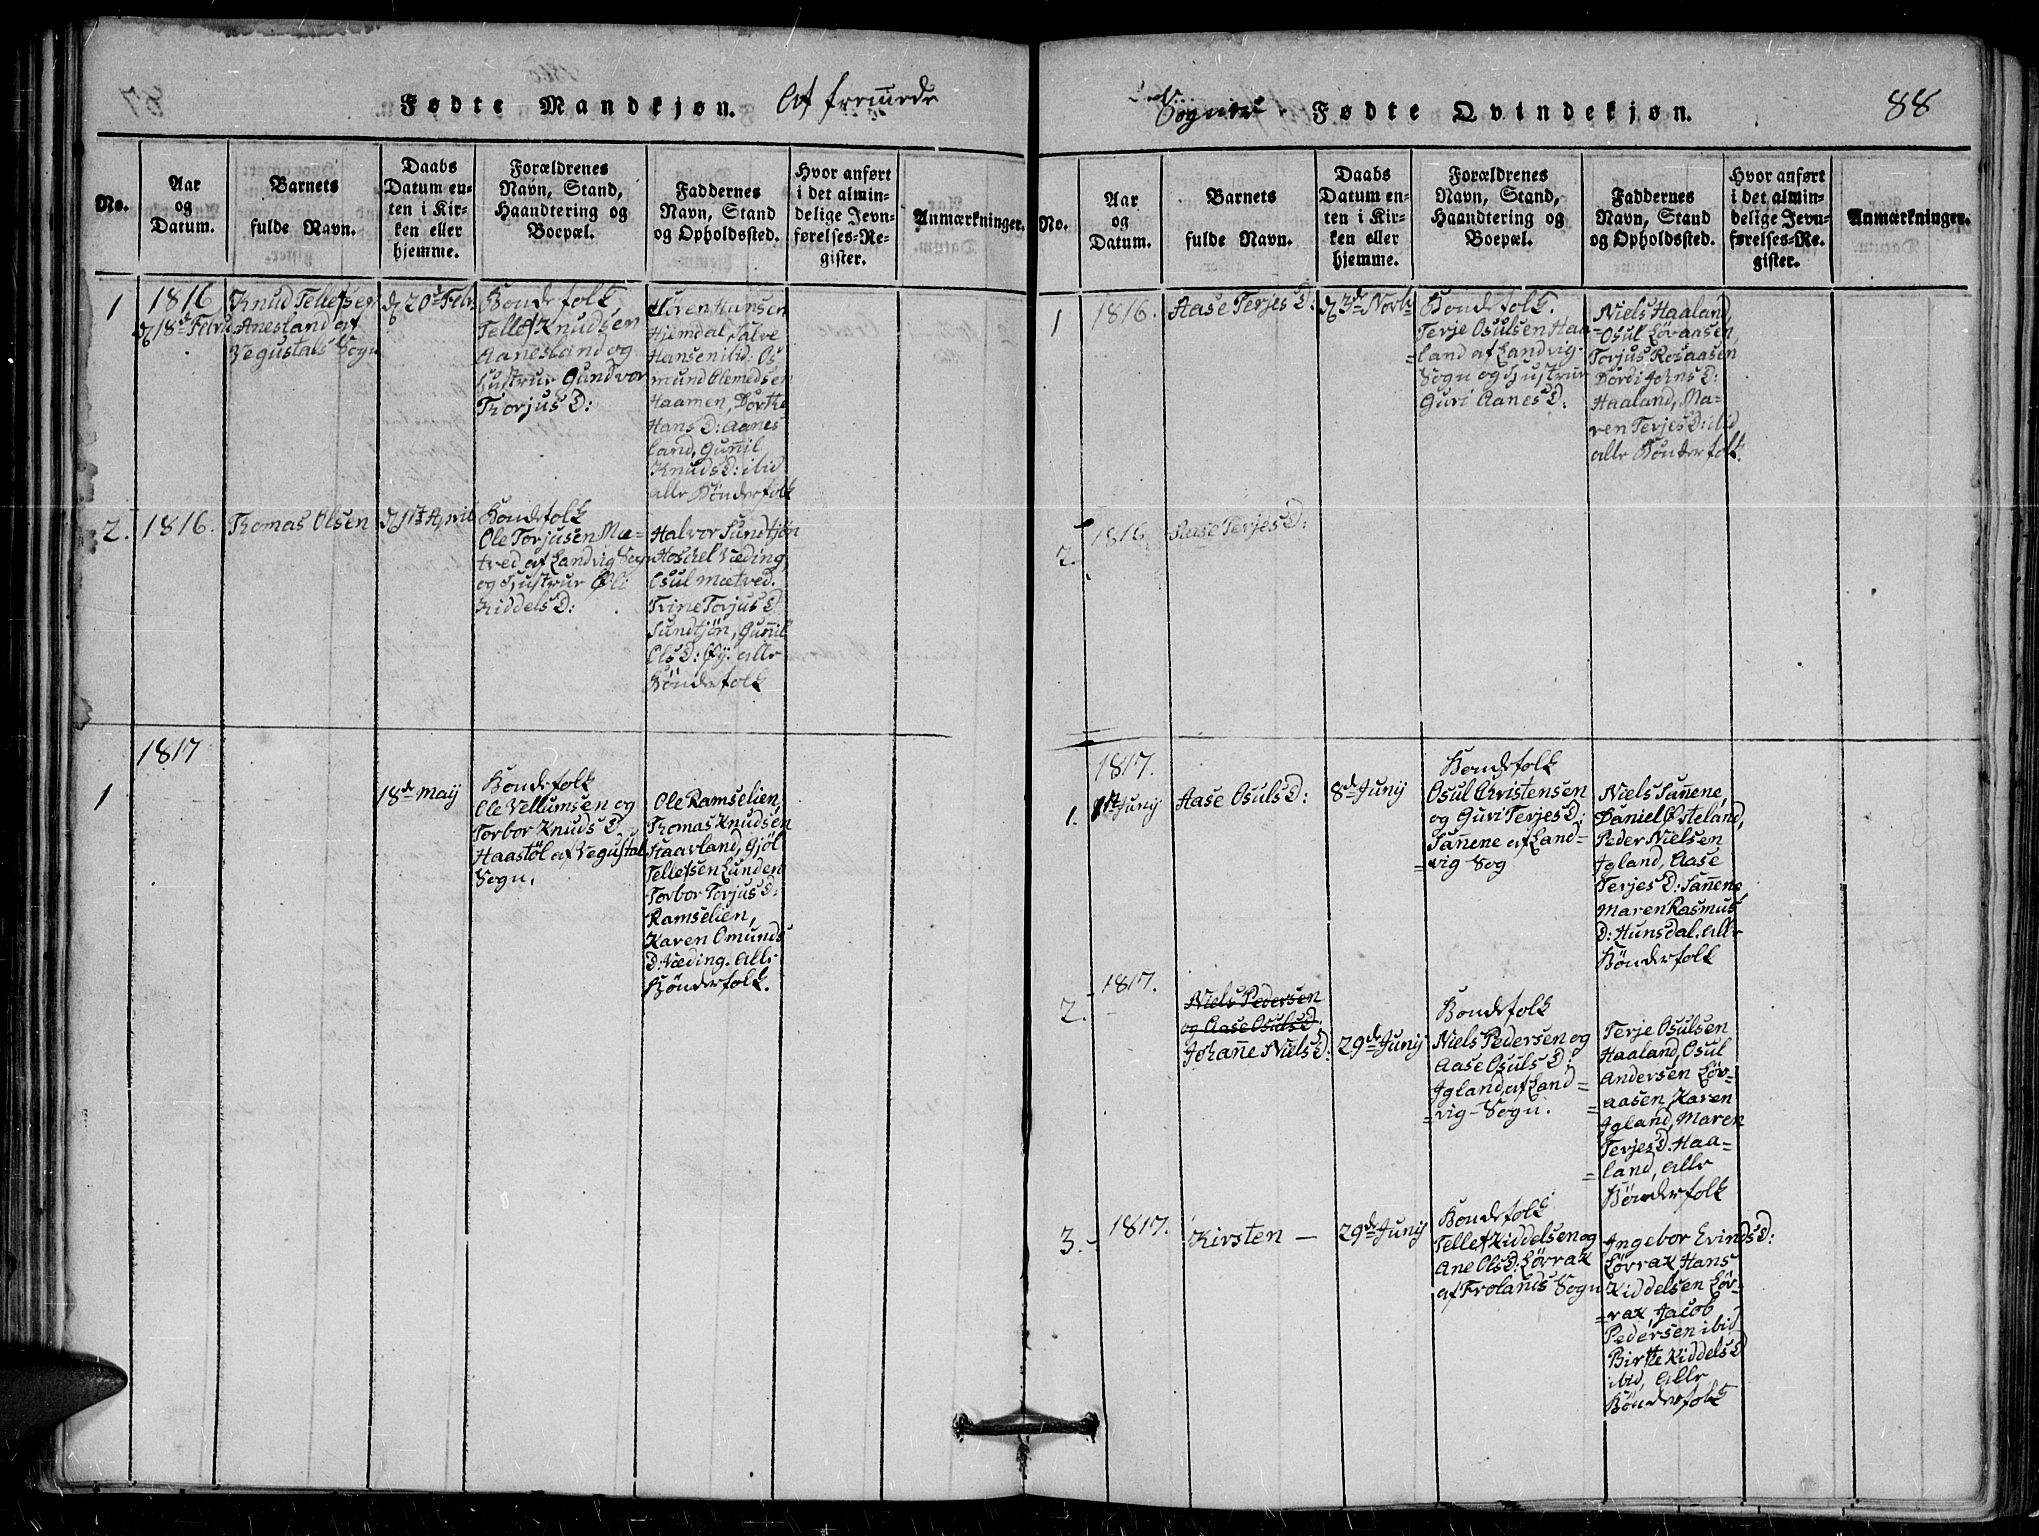 Fødte Mandkjøn. Af fremede
No.
Aar
og
Datum.
Barnets
fulde Navn.
Daabs
Datum en-
ten i Kir-
ken eller
hjemme.
Forældrenes
Navn, Stand,
Haandtering og
Boepæl.
Faddernes
Navn, Stand
og Opholdssted.
Hvor anført
i det almin-
delige Jevn-
førelses-Re-
gister.
Anmærkninger.
1
1816
d 18d Febru
Knud Tellefsen
Anesland af
Vegustals Sogn
d 20d Febr.
Bondefolk
Tellef Knudsen
Aanesland og
Hustrue Gundvor
Torjus D:
Hansen
Hjemdal, Salve
Hansen ibid: Os
mund Olemedsen
Haamen, Dorthe
Hans D: Aanes
land, Guñil
Knuds D: ibid
alle Bönderfolk
2.
1816.
Thomas Olsen
April
Bondefolk
Ole Torjusen Mæ-
tved af Landvig Sogn
og Hustrue Øli
Kiddels D:
Halvor Sundtjön
Væding
Osul Mætved.
Trine Torjus D
Sundtjön, Guñil
Ols D: Øÿ. alle
Bönderfolk
1817
1
18d May
Bondefolk
Ole Vellumsen og
Torbor Knuds D.
Haastöl af Vegustal
Sogn.
Ole Ramselien,
Thomas Knudsen
Staavland, Gjöl
Tellefsen Lunden
Torbor Torjus D:
Ramselien,
Karen Omunds
D: Væding. alle
Bönderfolk.
Sogner. Fødte Qvindekjøn.
88
No.
Aar
og
Datum.
Barnets
fulde Navn.
Daabs
Datum en-
ten i Kir-
ken eller
hjemme.
Forældrenes
Navn, Stand,
Haandtering og
Boepæl.
Faddernes
Navn, Stand
og Opholdssted.
Hvor anført
i det almin-
delige Jevn-
førelses-Re-
gister.
Anmærkninger.
1
1816.
Aase Terjes D:
d 3d Novb
Bondefolk.
Terje Osulsen Haa
=land af Landvig-
Sogn og Hustrue
Guri Aanes D.
Niels Haaland,
Osul Lövaasen,
Torjus Rosaasen
Dordi Johns D:
Haaland, Ma-
ren Terjes D: ibid,
alle Bönderfolk.
2.
1816
Aase Terjes D:
1817.
1.
1st Juny
Aase Osuls D:
8d Juny
Bondefolk
Osul Christensen
og Guri Terjes D:
Sañene af Land-
=vig Sog
Niels Sañene,
Daniel Østeland,
Peder Nielsen
Igland, Aase
Terjes D: Sañene,
Maren Rasmus
D: Hunsdal. alle
Bönderfolk
2.
1817.
Niels Pedersen
og Aase Osuls D.
Johañe Niels D:
29d Juny
Bondefolk
Niels Pedersen og
Aase Osuls D:
Igland, af Land=
=vig-Sogn.
Terje Osulsen
Haaland, Osul
Andersen Löv-
=aasen, Karen
Igland, Maren
Terjes D. Haa-
=land, alle
Bönderfolk
3.
1817.
Kirsten —
29d Juny
Bondefolk
Tellef Kiddelsen og
Ane Ols D: Lövrax
af Frolands Sogn
Ingebor Evinds D:
Lövrax Hans
Kiddelsen Löv-
=rax, Jacob
Pedersen ibid
Birtte Kiddels D
ibid, alle
Bönderfolk